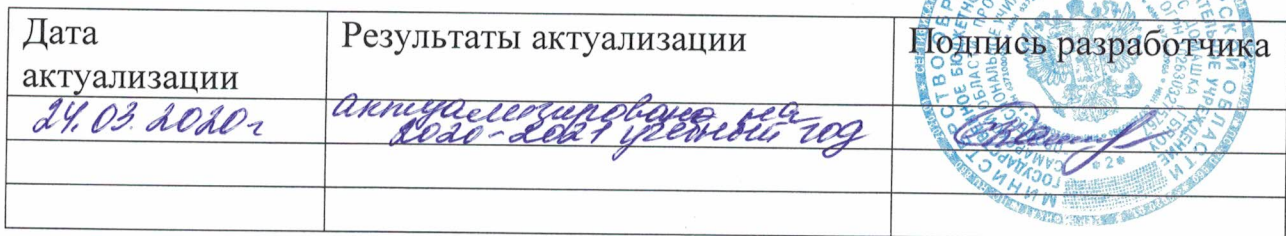 Дата
актуализации
Результаты актуализации
Подпись разработчика
24.03.2020г
актуализировано на
2020-2021 учебный год